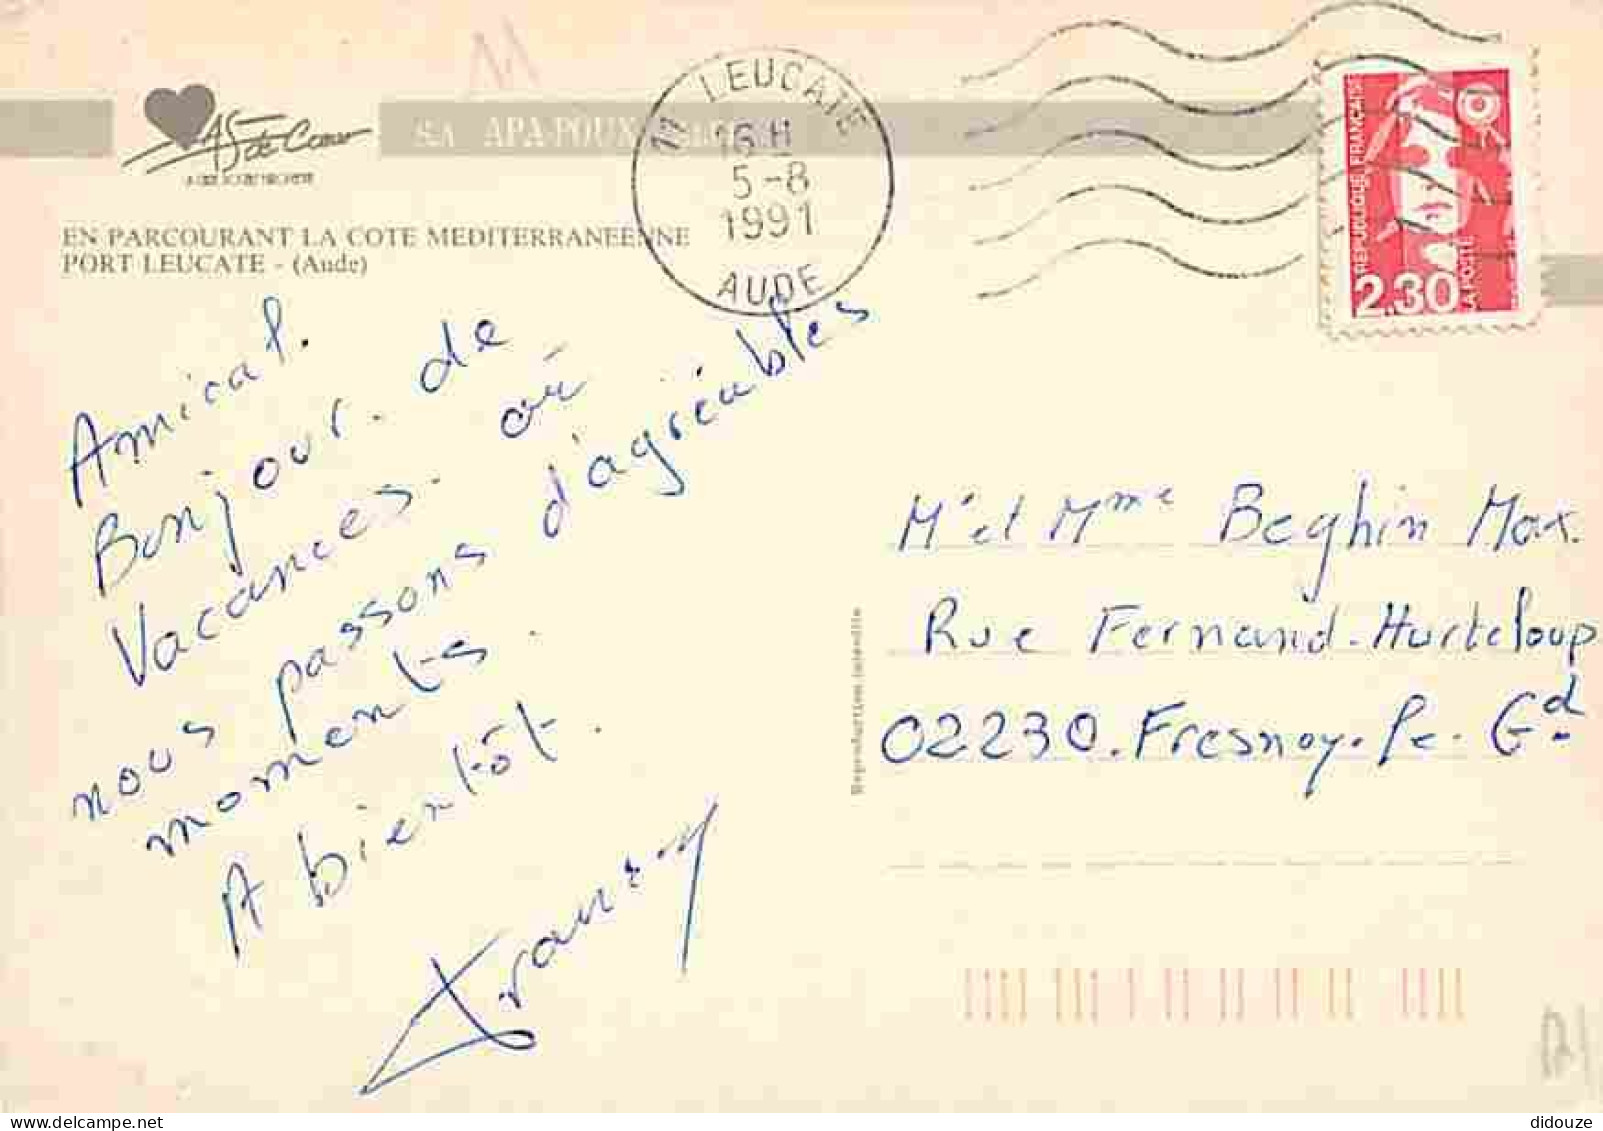 11
AS
de Coeur
SA APA-POUX
EN PARCOURANT LA COTE MEDITERRANEENNE
PORT LEUCATE - (Aude)
11 LEUCATE
16 H
5-8
1991
AUDE
REPUBLIQUE FRANÇAISE
2,30
LA POSTE
Amical.
Bonjour. de
Vacances. où
nous passons d'agréables
moments.
A bientôt.
Reproduction interdite
Mr et Mme Beghin Max.
Rue Fernand-Hurteloup
02230. Fresnoy. Le. Gd.
didouze